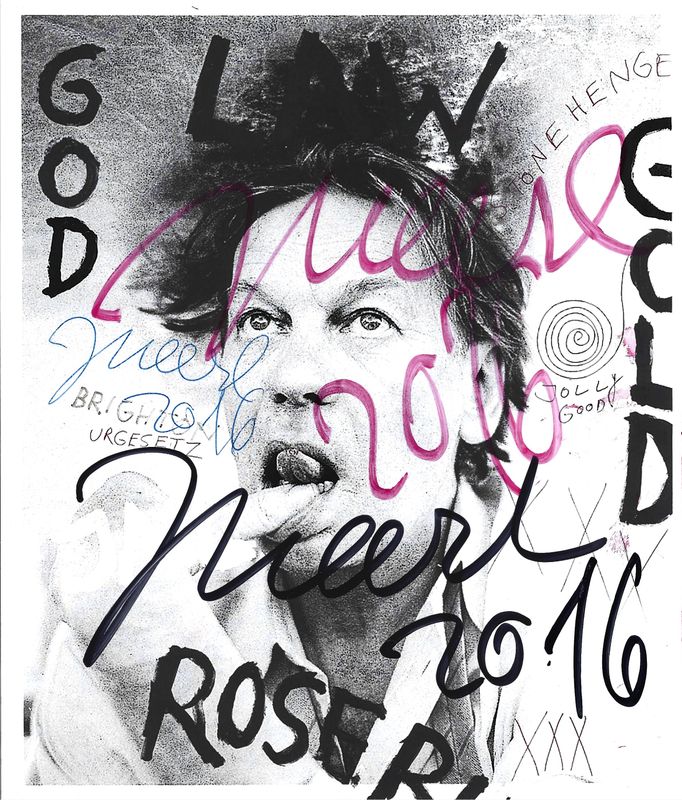 LAW
GOD
STONEHENGE
GOLD
JMeese
2016
JMeese
2016
BRIGHTON
URGESETZ
JOLLY
GOOD
JMeese
2016
XXX
XXX